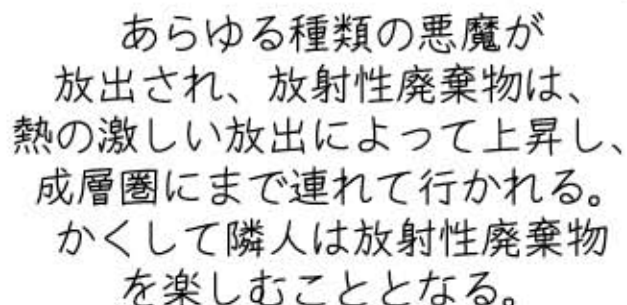 あらゆる種類の悪魔が
放出され、放射性廃棄物は、
熱の激しい放出によって上昇し、
成層圏にまで連れて行かれる。
かくして隣人は放射性廃棄物
を楽しむこととなる。